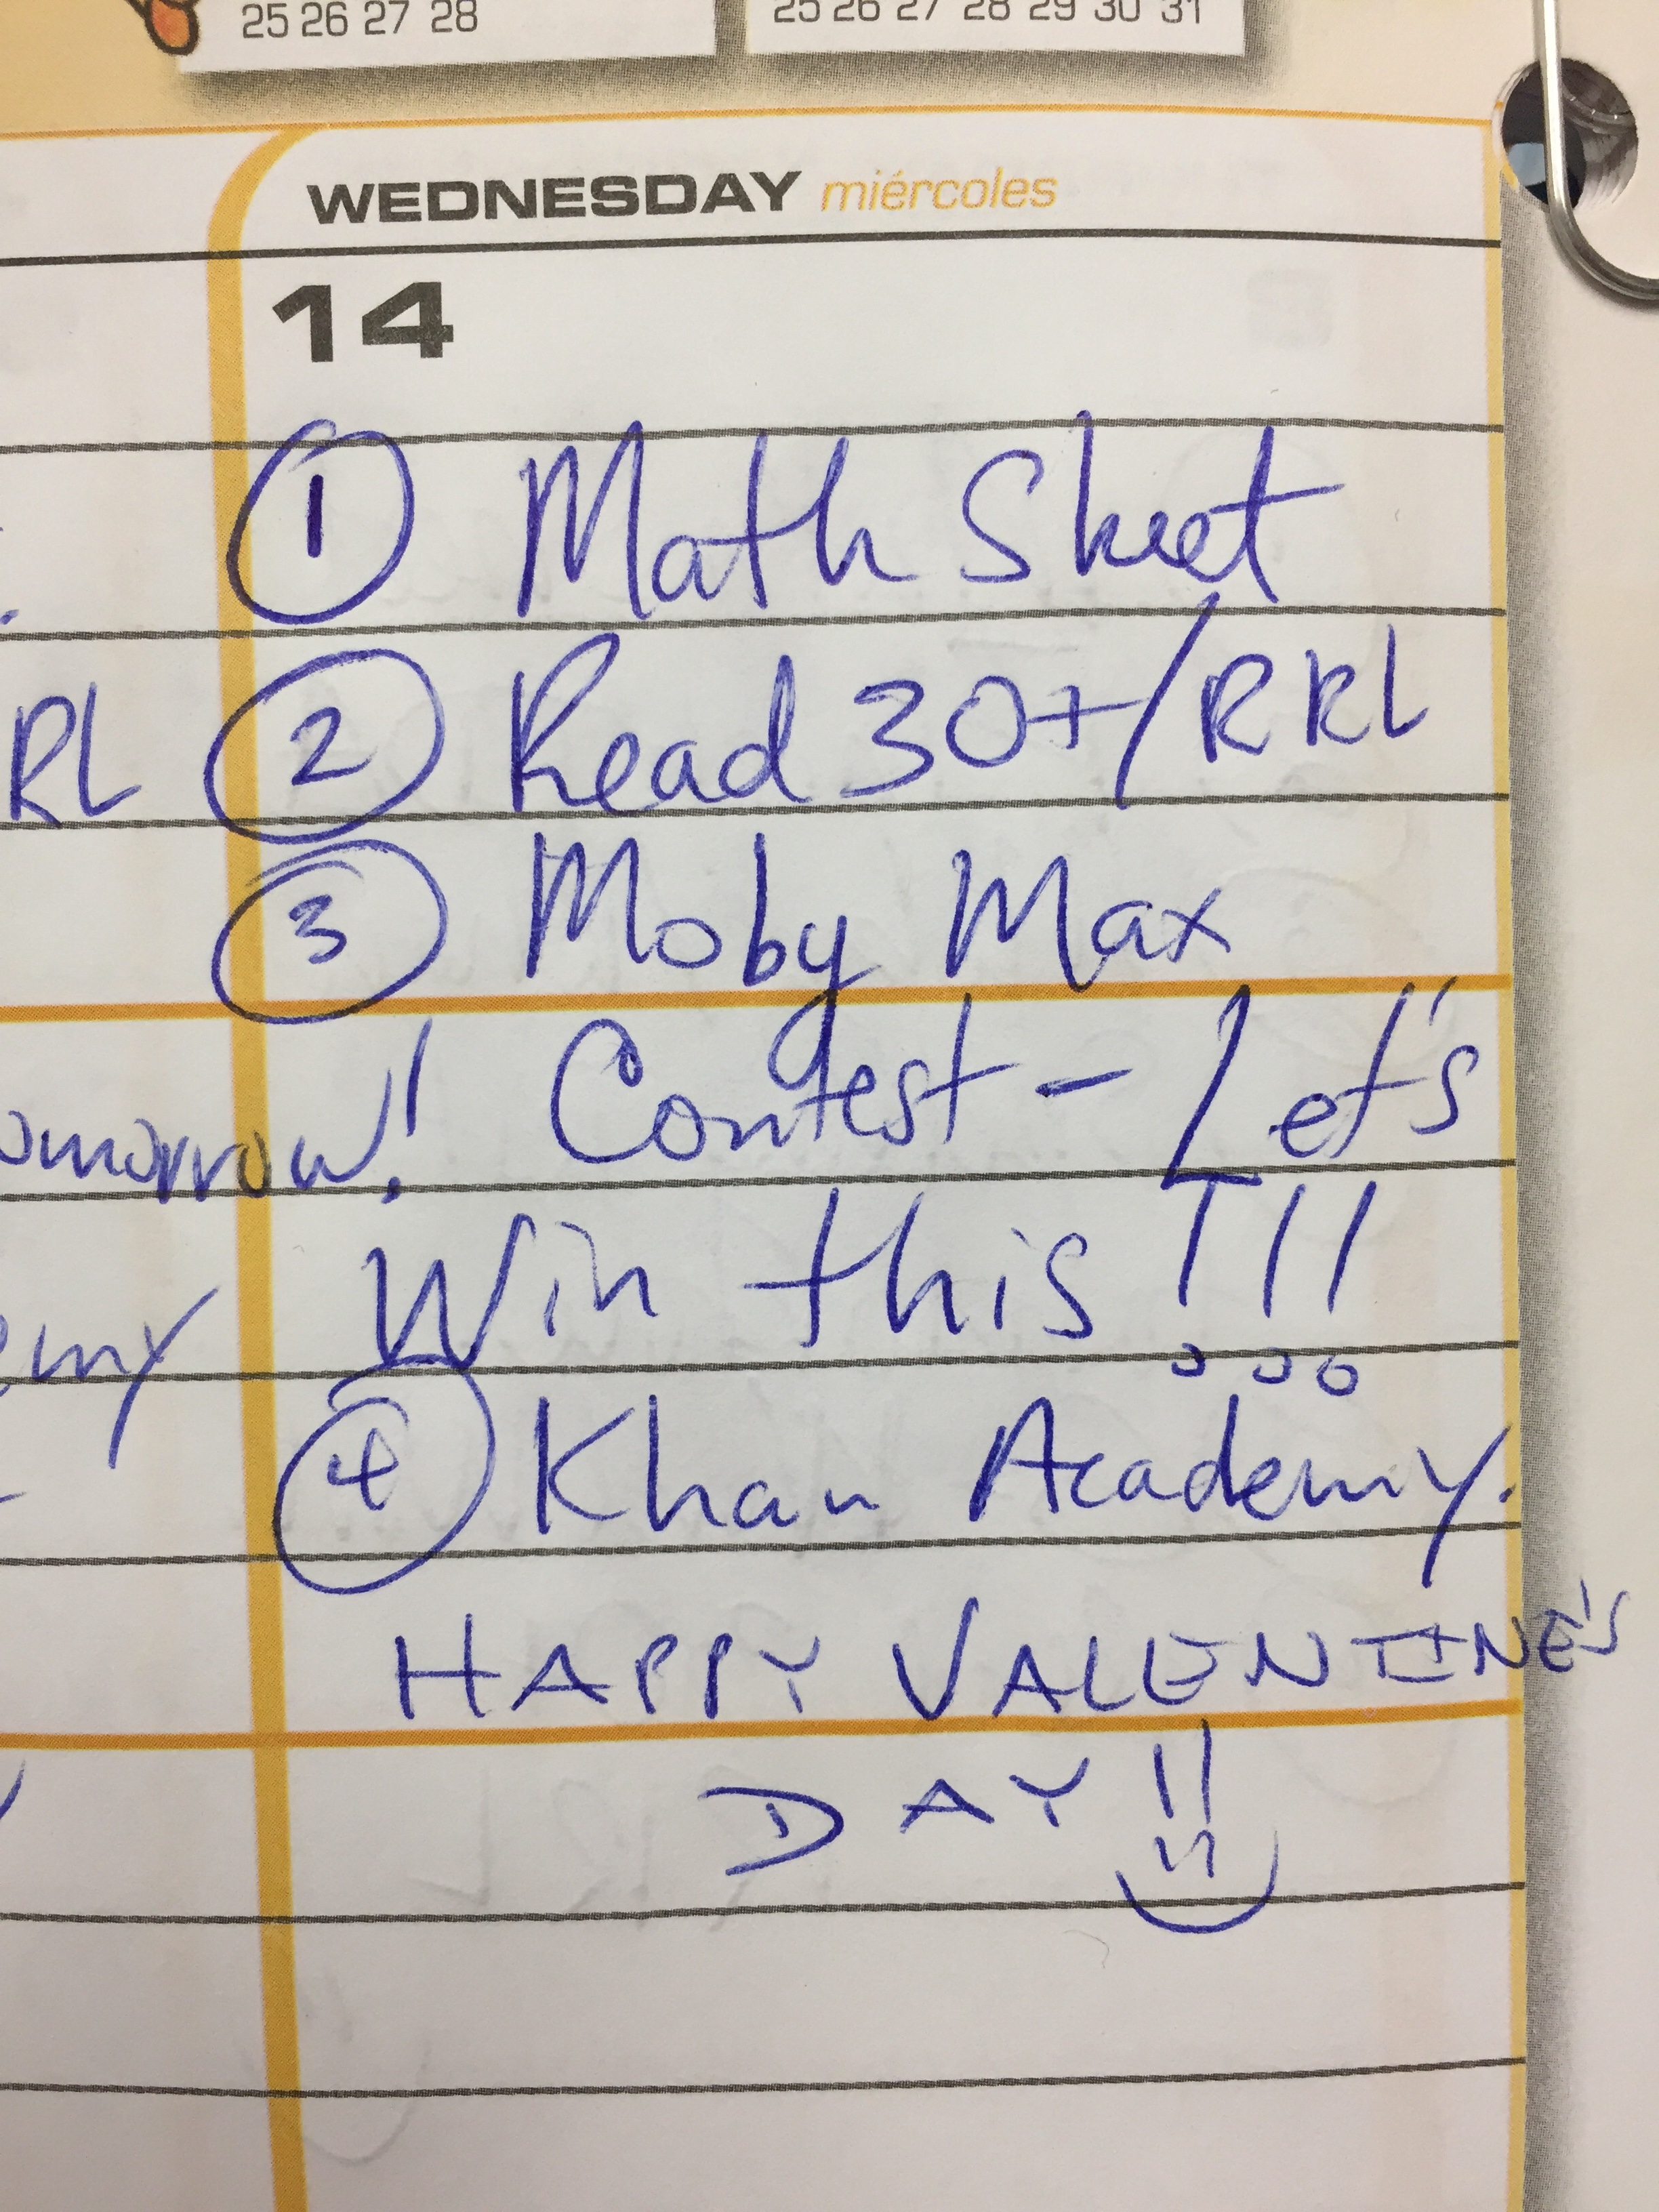 25 26 27 28
25 26 27 28 29 30 31
WEDNESDAY miércoles
14
① Math Sheet
RL
② Read 30+/RRL
③ Moby Max
omorrow!
Contest - Let's
Win this!!!
emy
④ Khan Academy.
HAPPY VALENTINE'S
DAY!!